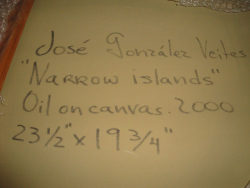 José González Veites
"Narrow islands"
Oil on canvas. 2000
23 1/2" x 19 3/4"